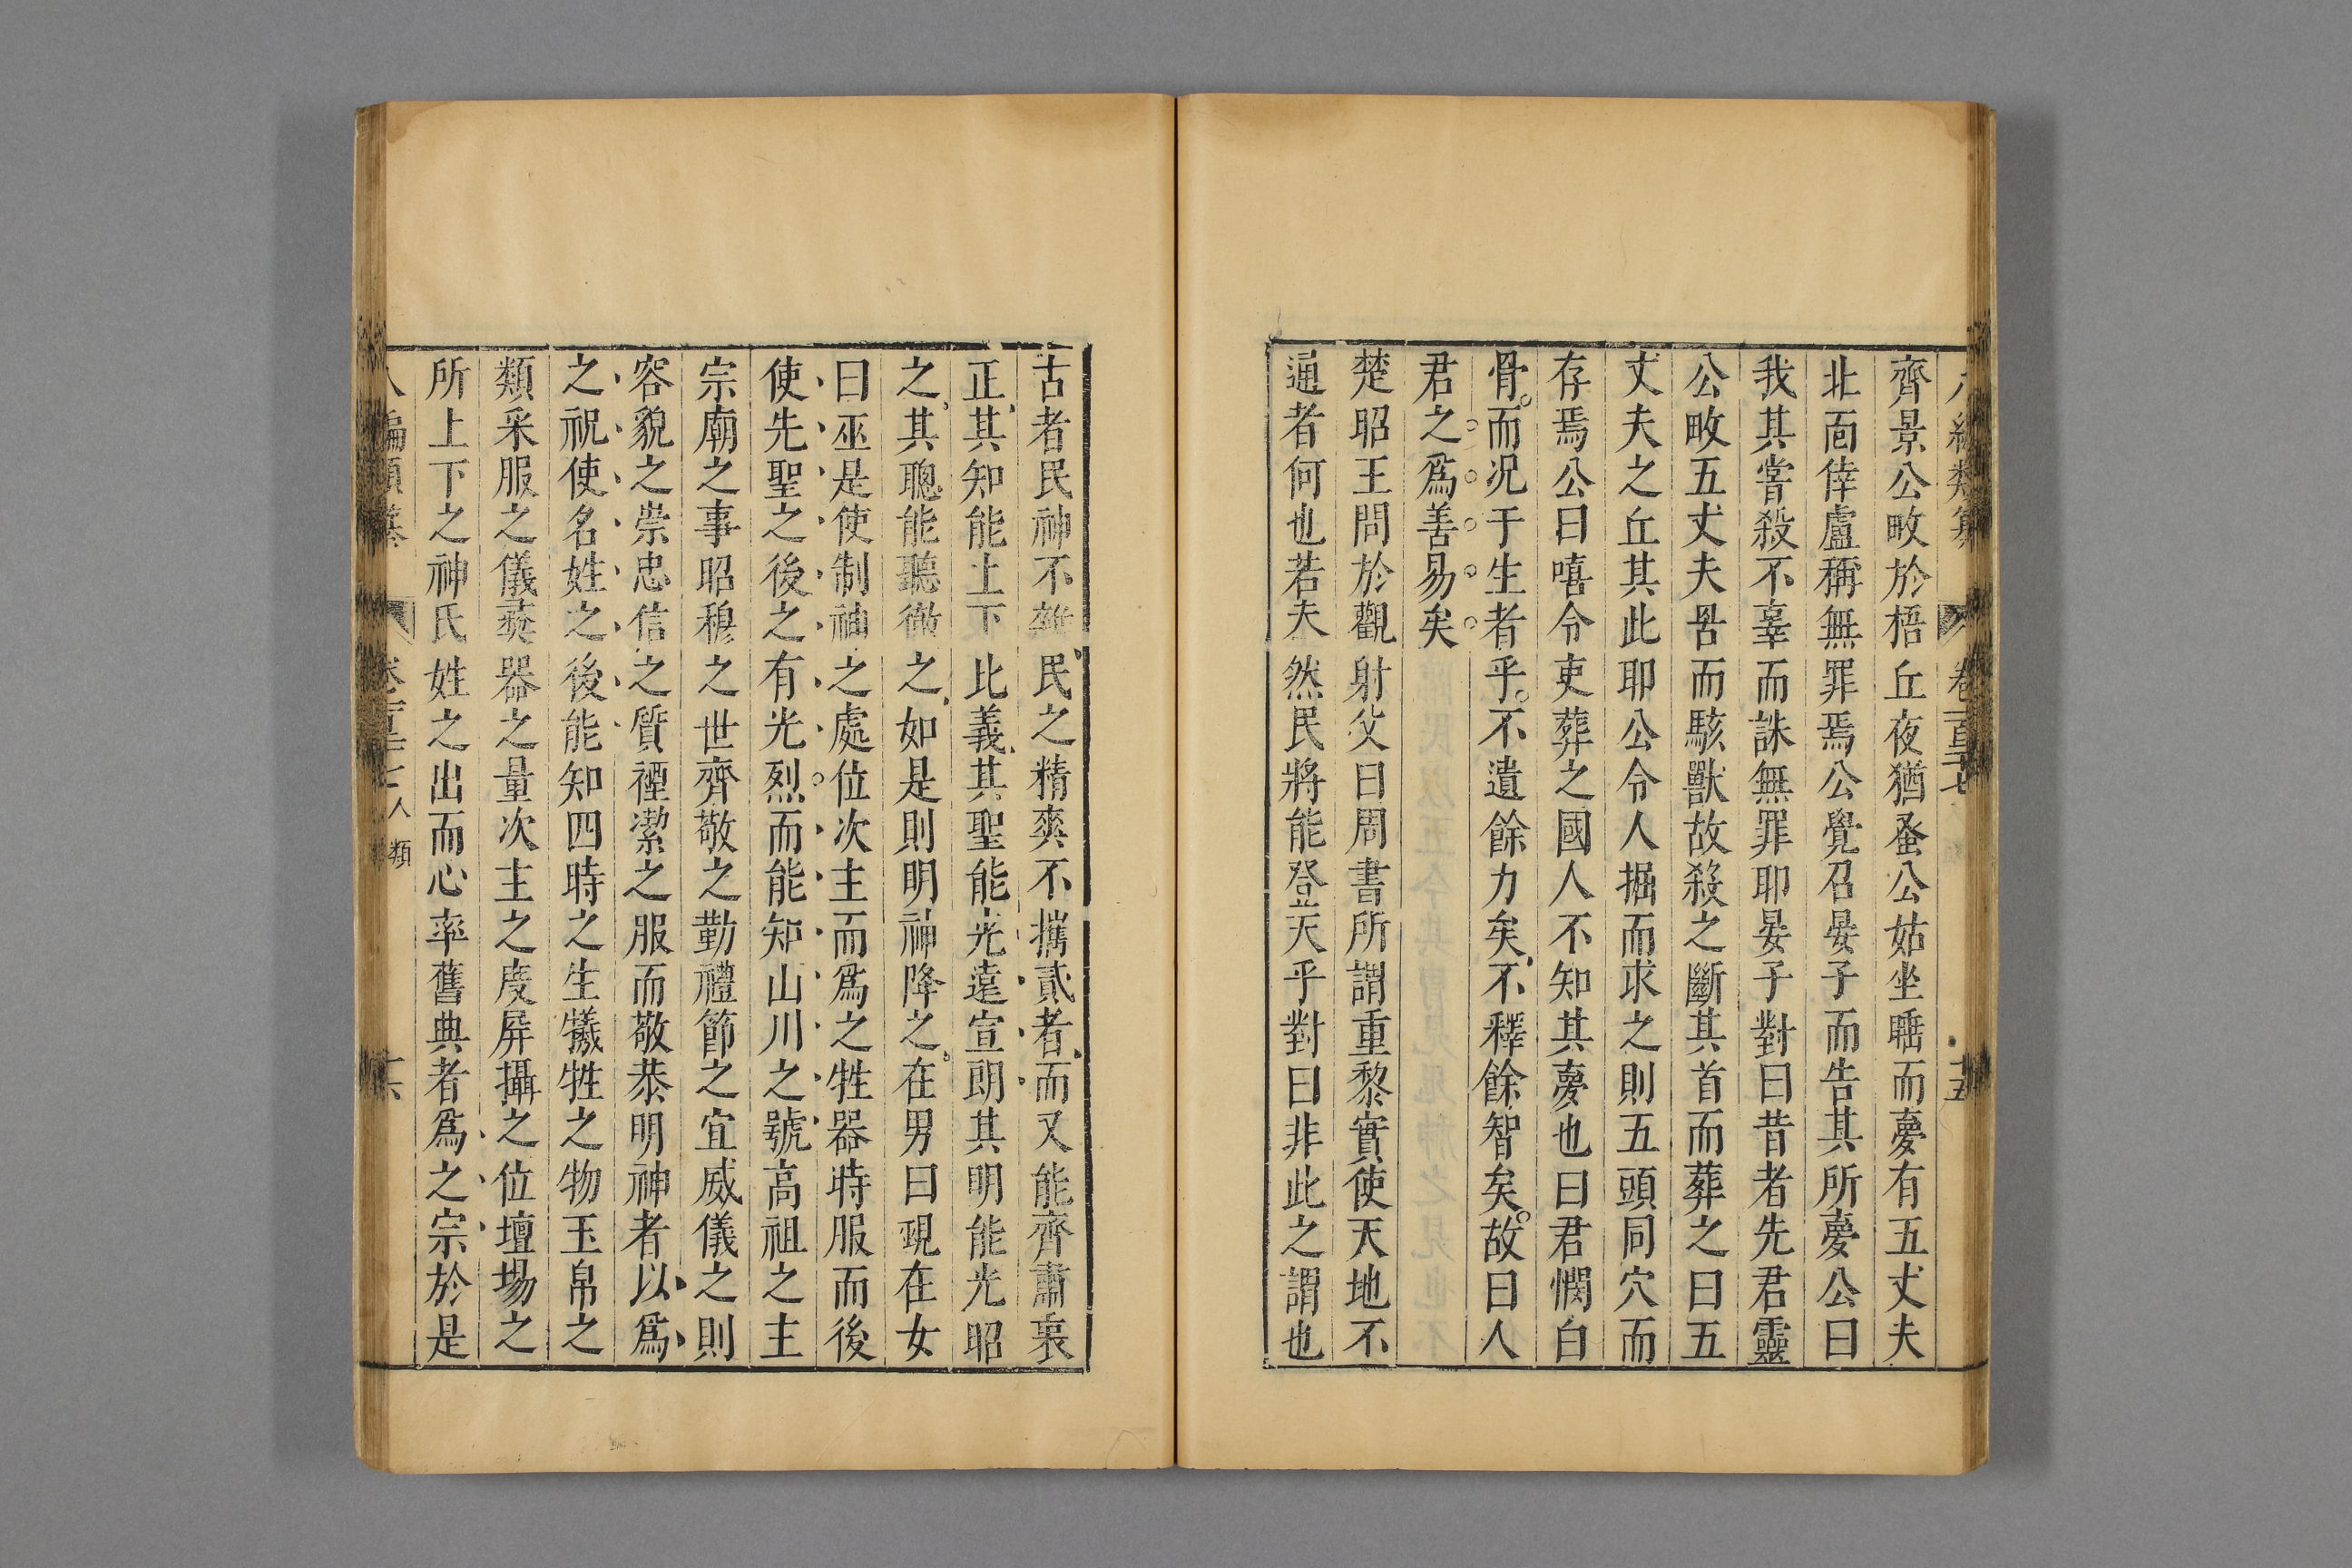 八編類纂 卷一百三十七 十五
齊景公畋於梧丘夜猶蚤公姑坐睡而夢有五丈夫
北面倖盧稱無罪焉公覺召晏子而告其所夢公曰
我其嘗殺不辜而誅無罪耶晏子對曰昔者先君靈
公畋五丈夫罟而駭獸故殺之斷其首而葬之曰五
丈夫之丘其此耶公令人掘而求之則五頭同穴而
存焉公曰嘻令吏葬之國人不知其夢也曰君憫白
骨而況于生者乎不遺餘力矣不釋餘智矣故曰人
君之爲善易矣
楚昭王問於觀射父曰周書所謂重黎實使天地不
通者何也若夫然民將能登天乎對曰非此之謂也
古者民神不雜民之精爽不攜貳者而又能齊肅衷
正其知能上下比義其聖能光遠宣朗其明能光昭
之其聰能聽徹之如是則明神降之在男曰覡在女
曰巫是使制神之處位次主而爲之牲器時服而後
使先聖之後之有光烈而能知山川之號高祖之主
宗廟之事昭穆之世齊敬之勤禮節之宜威儀之則
容貌之崇忠信之質禋潔之服而敬恭明神者以爲
之祝使名姓之後能知四時之生犧牲之物玉帛之
類采服之儀彝器之量次主之度屏攝之位壇場之
所上下之神氏姓之出而心率舊典者爲之宗於是
八編類纂 卷一百三十七 人類 十六